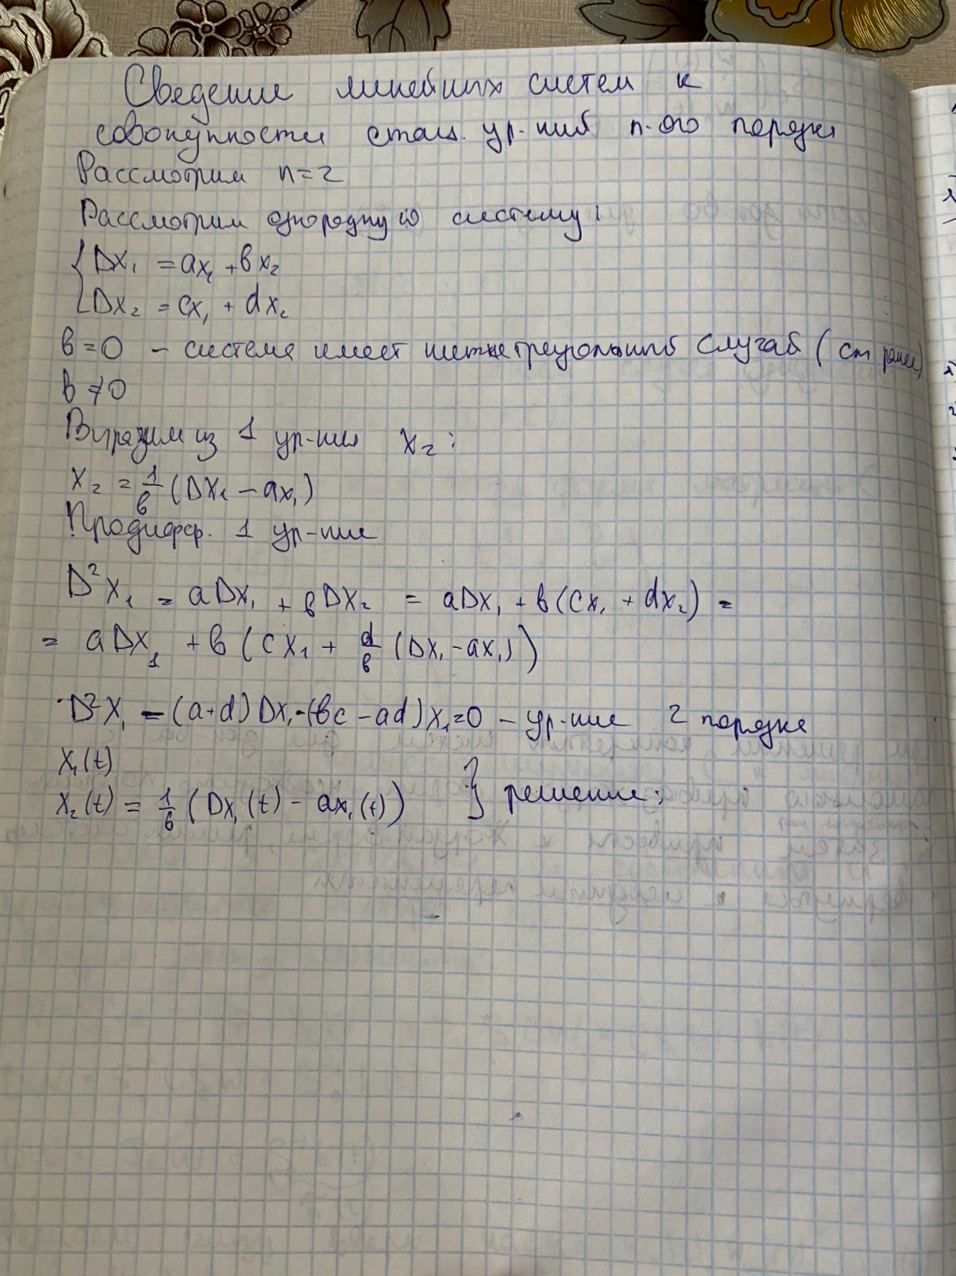 Сведение линейных систем к
совокупности стац. ур-ний n-ого порядка
Рассмотрим n=2
Рассмотрим однородную систему:
{Dx₁ = ax₁ + bx₂
Dx₂ = cx₁ + dx₂
b=0 – система имеет нижнетреугольный случай (см ранее)
b ≠0
Выразим из 1 ур-ния x₂:
x₂ = 1/b (Dx₁ – ax₁)
Продифер. 1 ур-ние
D²x₁ = aDx₁ + bDx₂ = aDx₁ + b(cx₁ + dx₂) =
= aDx₁ + b(cx₁ + d/b (Dx₁ – ax₁))
D²x₁ – (a+d)Dx₁ – (bc – ad)x₁ = 0 – ур-ние 2 порядка
x₁(t)
x₂(t) = 1/b (Dx₁(t) – ax₁(t)) } решение;